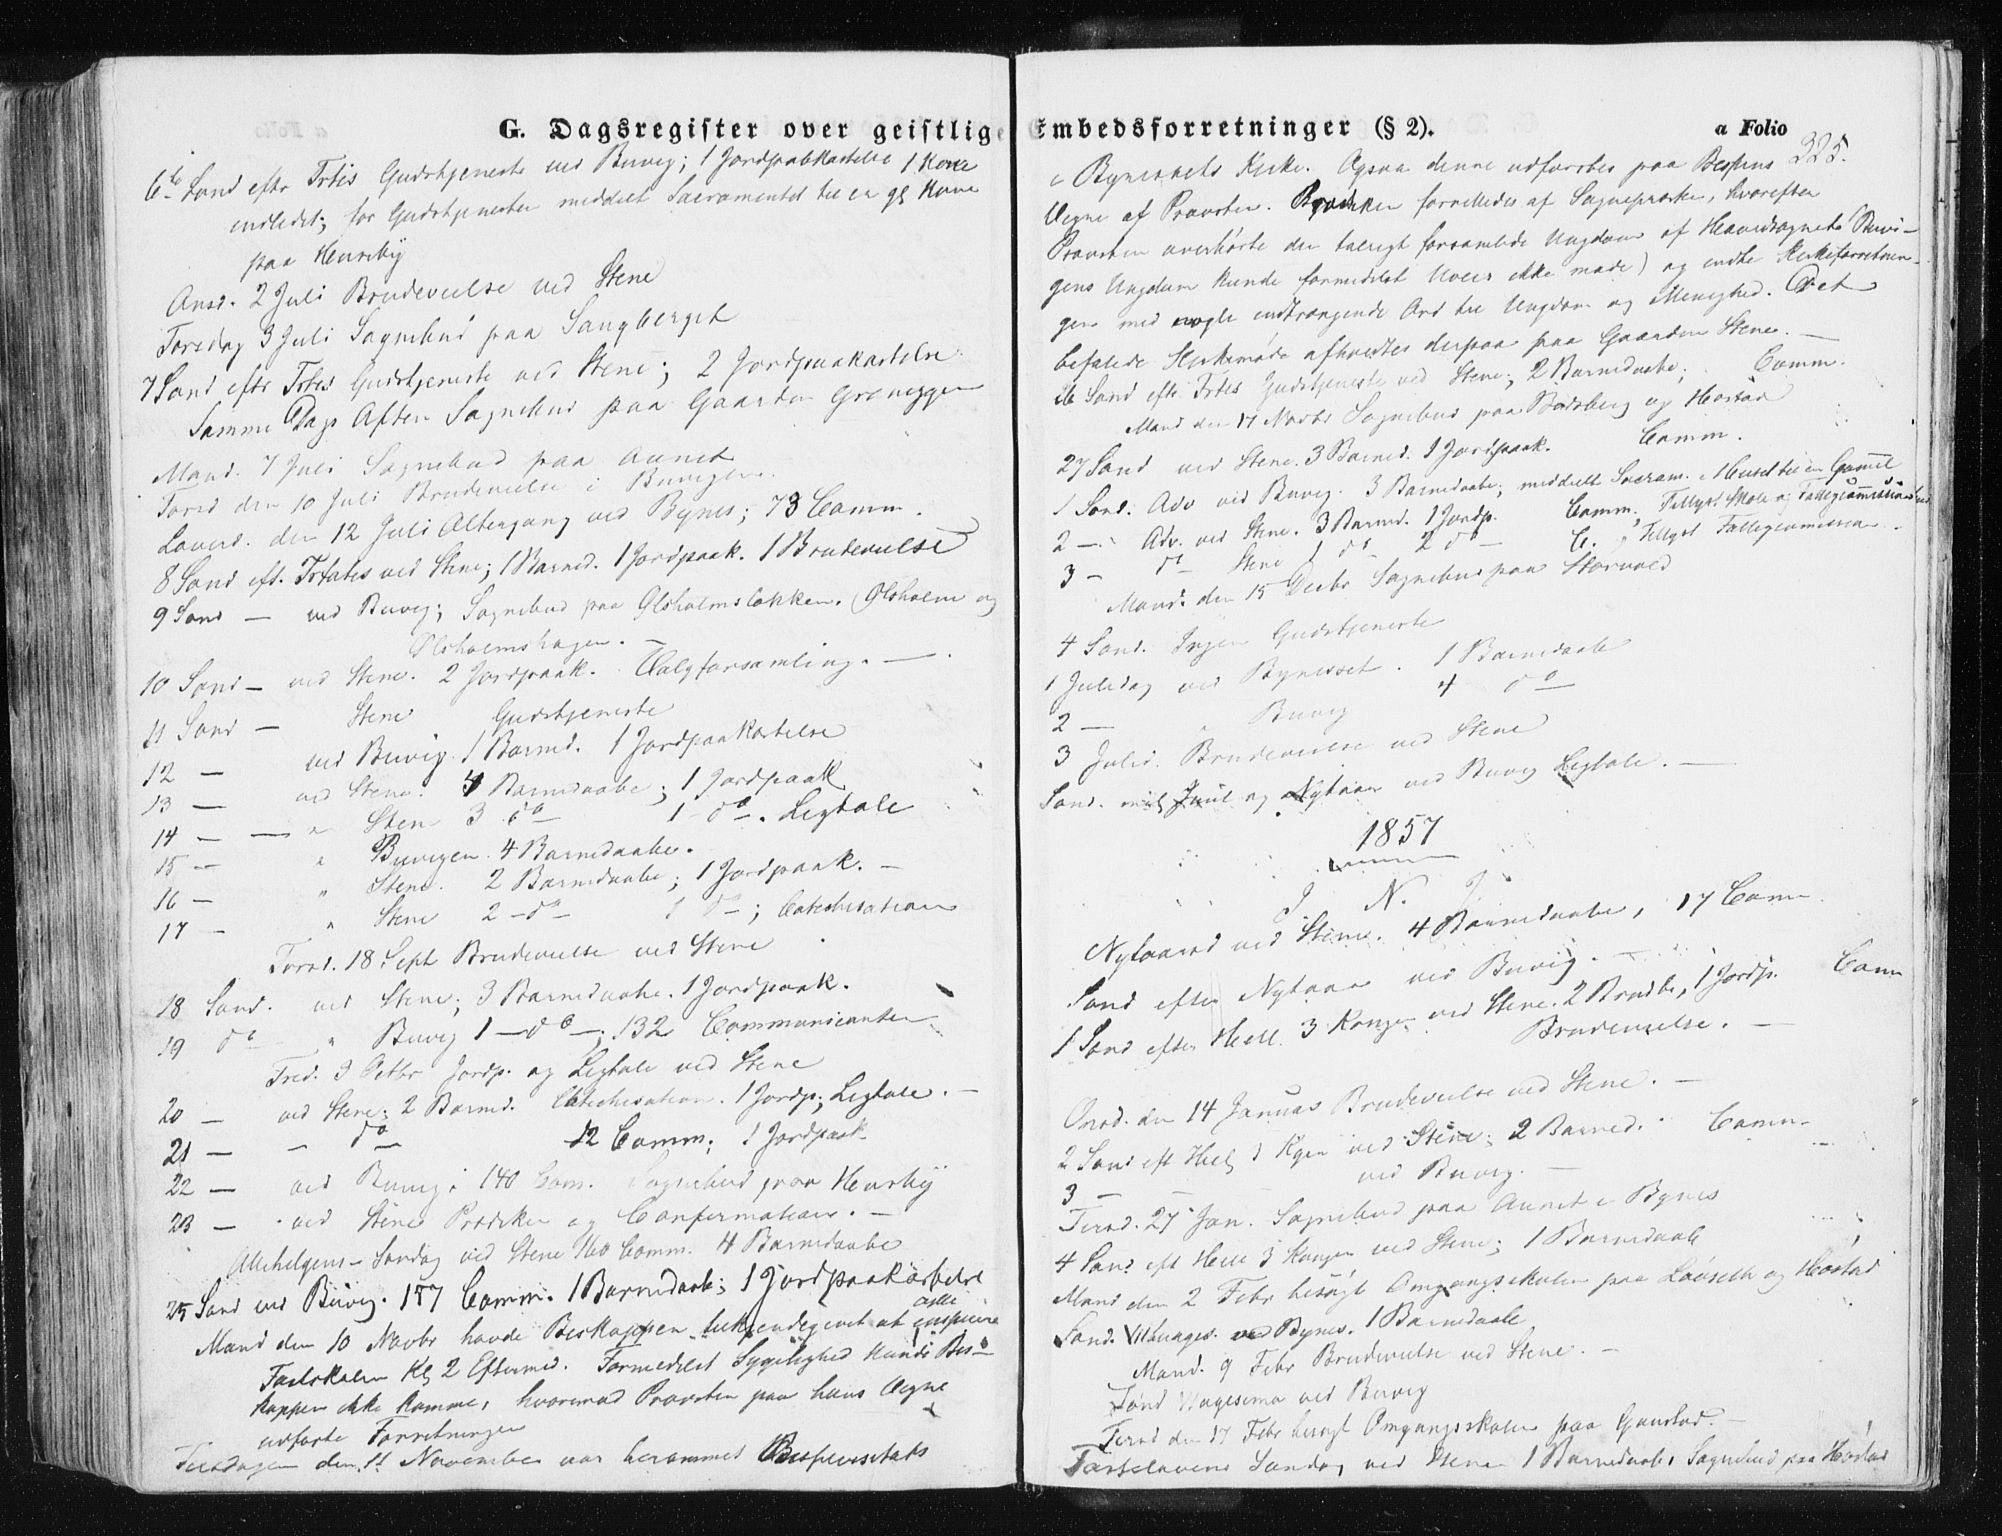 G. Dagsregister over geistlige Embedsforretninger (§ 2).
a Folio
325.
6te Sønd efter Trtis Gudstjeneste ved Buvig; 1 Jordpaakastelse 1 Kone
indledet; før Gudstjenesten meddelt Sacramentet til en gl Kone
paa Hensby
Onsd. 2 Juli Brudevielse ved Stene
Torsdag 3 Juli Sognebud paa Sangberget
7 Sønd eftr Trtis Gudstjeneste ved Stene; 2 Jordpaakastelse
Samme Dags Aften Sognebud paa Gaarden Grønæggen
Mand. 7 Juli Sognebud paa Aunet
Torsd den 10 Juli Brudevielse i Buvigen.
Løverd. den 12 Juli Altergang ved Bynes; 73 Comm.
8 Sønd eft. Trtatis ved Stene; 1 Barned. 1 Jordpaak. 1 Brudevielse
9 Sønd — ved Buvig; Sognebud paa Ølsholmsløkken. Ølsholm og
Ølsholmshagen. —
10 Sønd — ved Stene. 2 Jordpaak. Valgforsamling. —
11 Sønd — Stene Gudstjeneste
12 — ved Buvig 1 Barned. 1 Jordpaakastelse
13 — ved Stene. 4 Barnedaabe; 1 Jordpaak
14 — — " Sten 3 do 1 do. Ligtale
15 — " Buvigen 4 Barnedaabe.
16 — " Stene. 2 Barnedaabe; 1 Jordpaak. —
17 — " Stene 2 — do — 1 do —; Catechisation
Torsd. 18 Sept Brudevielse ved Stene
18 Sønd. ved Stene; 3 Barnedaabe. 1 Jordpaak.
19 do " Buvig 1 — do —; 132 Communicanter
Fred. 3 Octbr Jordp. og Ligtale ved Stene
20 — ved Stene; 2 Barned. Catechisation. 1 Jordp; Ligtale. —
21 — — do — 12 Comm; 1 Jordpaak
22 — ved Buvig; 140 Com. Sognebud paa Hensby
23 — ved Stene Prædiken og Confirmation. —
Allehelgens-Søndag ved Stene 160 Comm. 4 Barnedaabe
25 Sønd ved Buvig. 177 Comm. 1 Barnedaab; 1 Jordpaakastelse
Mand den 10 Novbr havde Biskoppen bekjendtgivet at ville inspicere
Fastskolen Kl 2 Eftermd. Formedelst Sygelighed kunde Bis-
koppen ikke komme, hvorimod Provsten paa hans Vegne
udførte Forretningen
Tirsdagen den 11 November var berammet Bispevisitats
i Bynessets Kirke. Ogsaa denne udførtes paa Bispens
Vegne af Provsten. Prædiken forrettedes af Sognepræsten, hvorefter
Provsten overhørte den talrigt forsamlede Ungdom af Hovedsognet (Buvi-
gens Ungdom kunde formedelst Uveir ikke møde) og endte Kirkeforretnin-
gen med nogle indtrængende Ord til Ungdom og Menighed. Det
befalede Kirkemøde afholdtes derpaa paa Gaarden Stene. —
26 Sønd eftr Trtis Gudstjeneste ved Stene; 2 Barnedaabe; Comm.
Mand den 17 Novbr Sognebud paa Bødsberg og Høstad
27 Sønd ved Stene. 3 Barned. 1 Jordpaak. Comm.
1 Sønd. Adv ved Buvig. 3 Barnedaabe; meddelt Sacram. i Huset til en Gammel
2 — Adv. ved Stene. 3 Barned. 1 Jordp. Comm, Tillyst Skole og Fattigcommission
3 — do Stene 1 do 2 do — C. Tillyst Fattigcommission
Mand. den 15 Decbr Sognebud paa Størvold
4 Sønd. Ingen Gudstjeneste
1 Juledag ved Bynesset. 1 Barnedaab
2 — " Buvig 4 do —
3 Juled. Brudevielse ved Stene
Sønd. mell Juul og Nytaar ved Buvig Ligtale. —
1857
I N. J.
Nytaarsd ved Stene. 4 Barnedaabe, 17 Comm
Sønd efter Nytaar ved Buvig. —
1 Sønd efter Hell. 3 Konger ved Stene. 2 Brndbe, 1 Jordp. Comm
Brudevielse. —
Onsd. den 14 Januar Brudevielse ved Stene. —
2 Sønd eft Hell 3 Kgn ved Stene; 2 Barned. Comm
3 — — — ved Buvig. —
Tirsd. 27 Jan. Sognebud paa Aunet i Bynes
4 Sønd eft Hell 3 Konger ved Stene; 1 Barnedaab
Mand den 2 Febr besøgt Omgangsskolen paa Laaseth og Høstad
Sønd. Septuages. ved Bynes. 1 Barnedaab
Mand. 9 Febr Brudevielse ved Stene. —
Sønd Sexagesima ved Buvig
Tirsd den 17 Febr besøgt Omgangsskolen paa Gaustad. —
Fastelavens Søndag ved Stene 1 Barnedaab, Sognebud paa Høstad